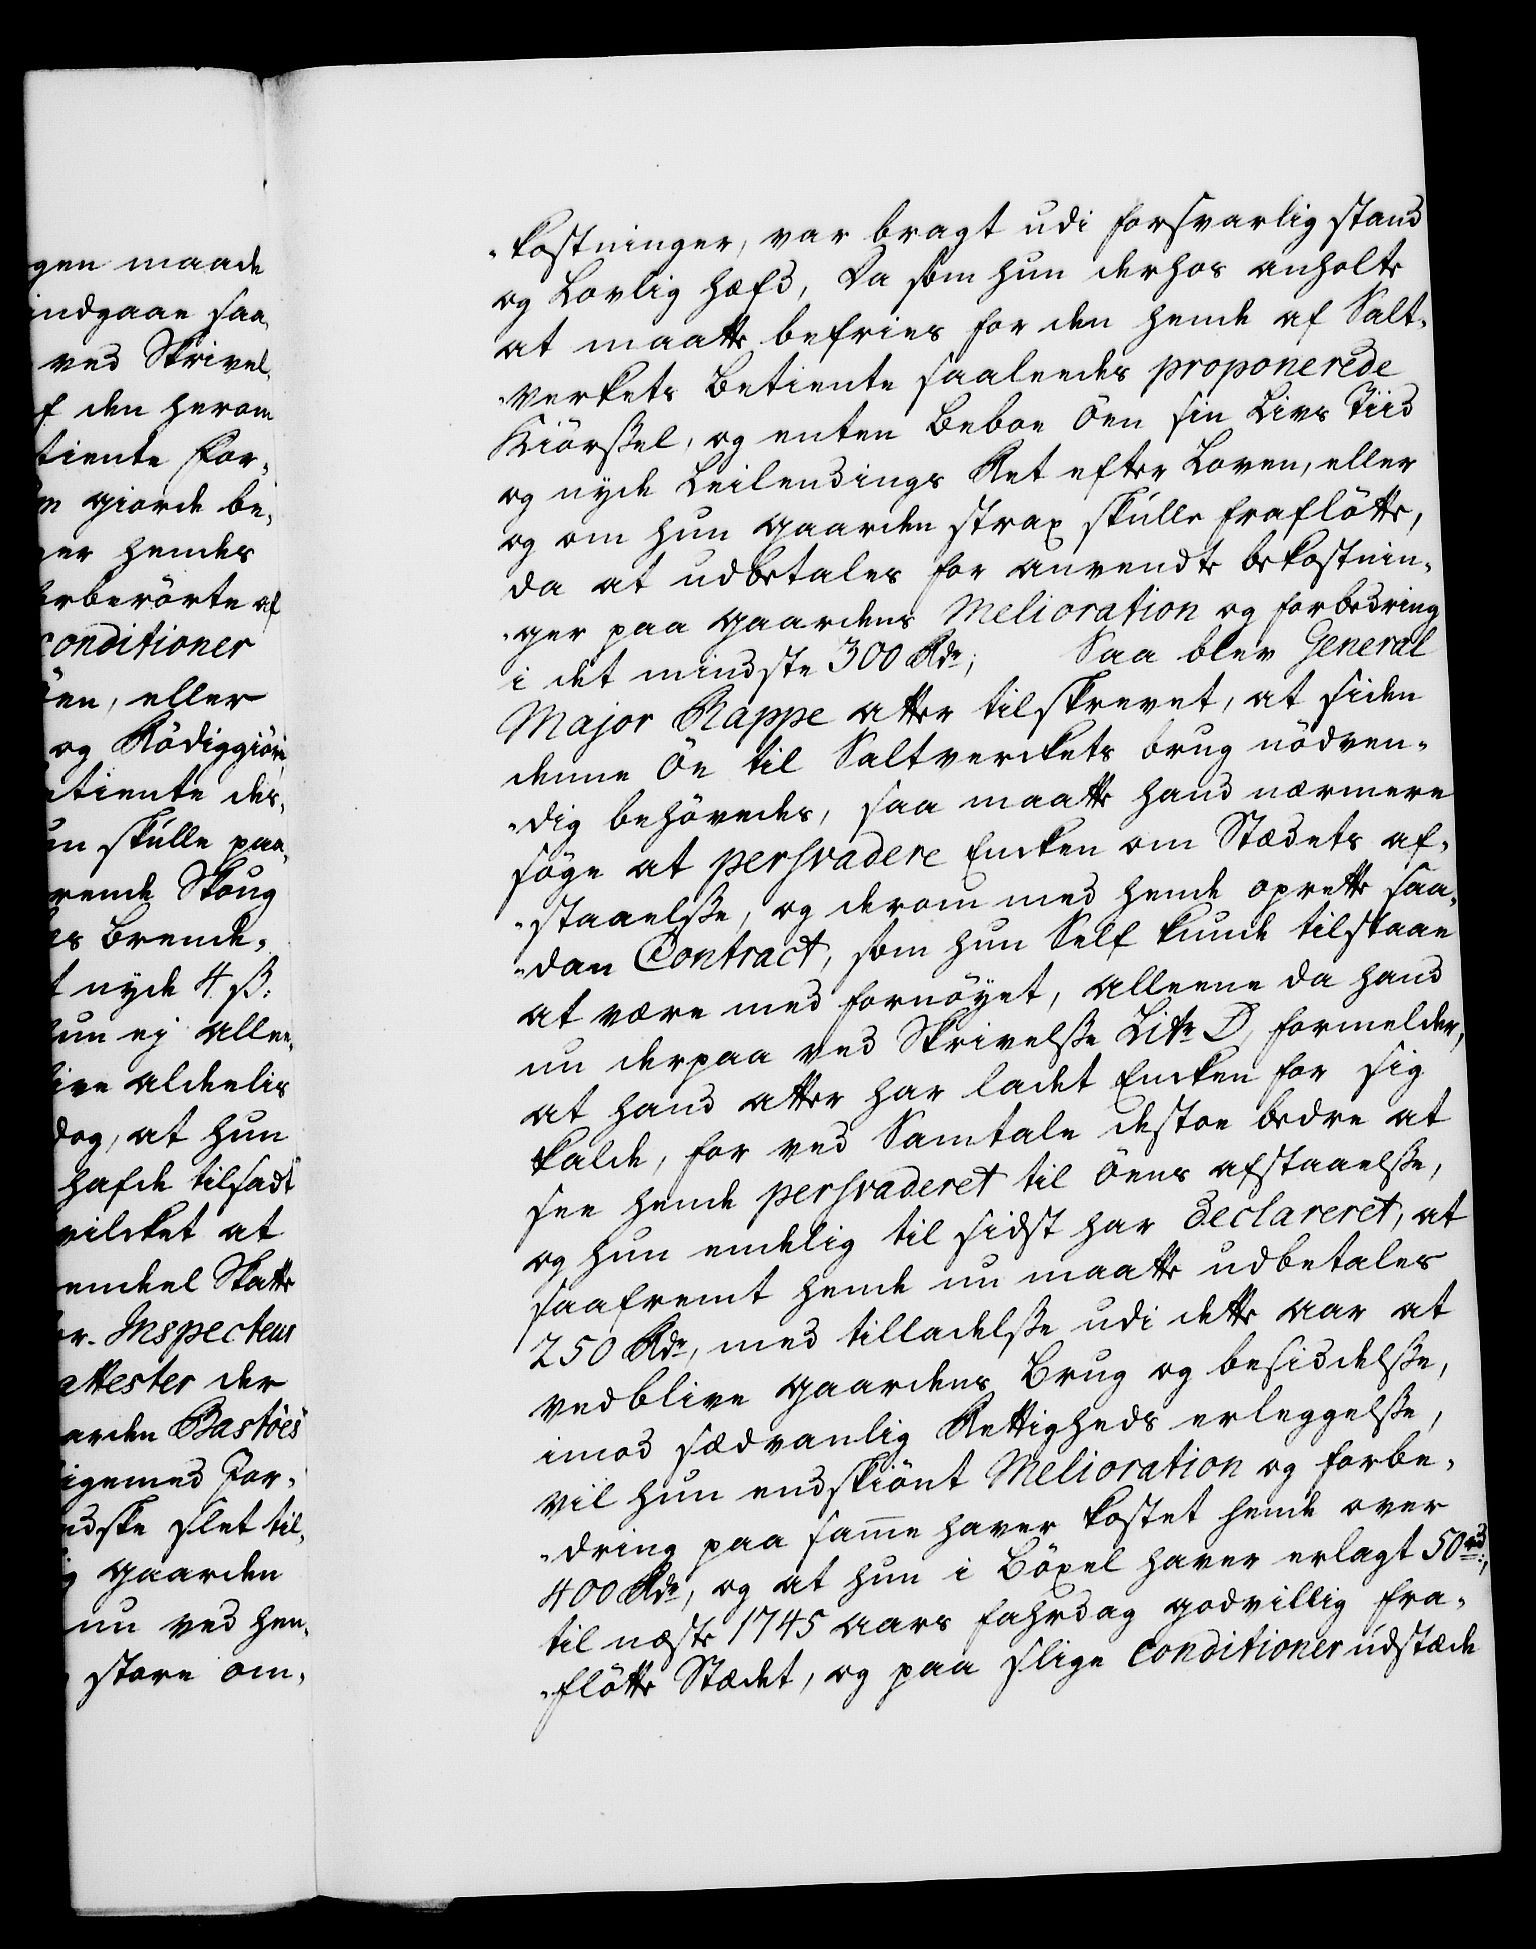 gen maade
indgaae saa
ved Skrivel,
f den herom
tiente for,
m giorde be,
er hendes
berörte af
Conditioner
öen, eller
og Rödiggiöre
tiente des,
un skulle paa,
rende Skoug
es Brende,
t nyde 4 ß:
un ej allee,
ive aldeelis
dog, at hun
hafde tilsadt
vilcket at
endeel Skatte
or. Inspecteur
attester der
arden Bastöes
igemed for,
ndske slet til,
gaarden
nu ved hen,
store om,
"kostninger, var bragt udi forsvarlig stand
og Lovlig hæfd, Da som hun derhos anholte
at maatte befries for den hende af Salt,
"verkets Betiente saaleedes proponerede
Kiörßel, og enten Beboe Öen sin Livs Tiid
og nyde Leilendings Ret efter Loven, eller
og om hun gaarden strax skulle fraflötte,
da at udbetales for anvendte bekostnin,
"ger paa gaardens Melioration og forbedring
i det mindste 300 Rdr; Saa blev General
Major Rappe atter tilskrevet, at siden
denne Öe til Saltverckets brug nödven,
"dig behövedes, saa maatte hand nærmere
söge at persvadere Encken om Stædets af,
"staaelße, og derom med hende oprette saa,
"dan Contract, som hun Self kunde tilstaae
at være med fornöyet, alleene da hand
nu derpaa ved Skrivelße Litr D, formelder,
at hand atter har ladet Encken for sig
kalde, for ved Samtale destoe bedre at
see hende persvaderet til Öens afstaaelße,
og hun endelig til sidst har declareret, at
saafremt hende nu maatte udbetales
250 Rdr, med tilladelße udi dette aar at
vedblive gaardens Brug og besiddelße,
imod sædvanlig Rettigheds erleggelße,
vil hun endskiönt Melioration og forbe,
"dring paa samme haver kostet hende over
400 Rdr, og at hun i Böxel haver erlagt 50 rd:,
til næste 1745 aars fahrdag godvillig fra,
"flötte Stædet, og paa slige Conditioner udstæde